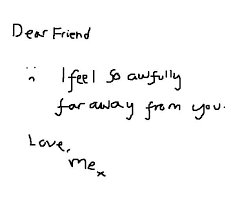 Dear Friend
I feel so awfully
far away from you.
Love,
me x